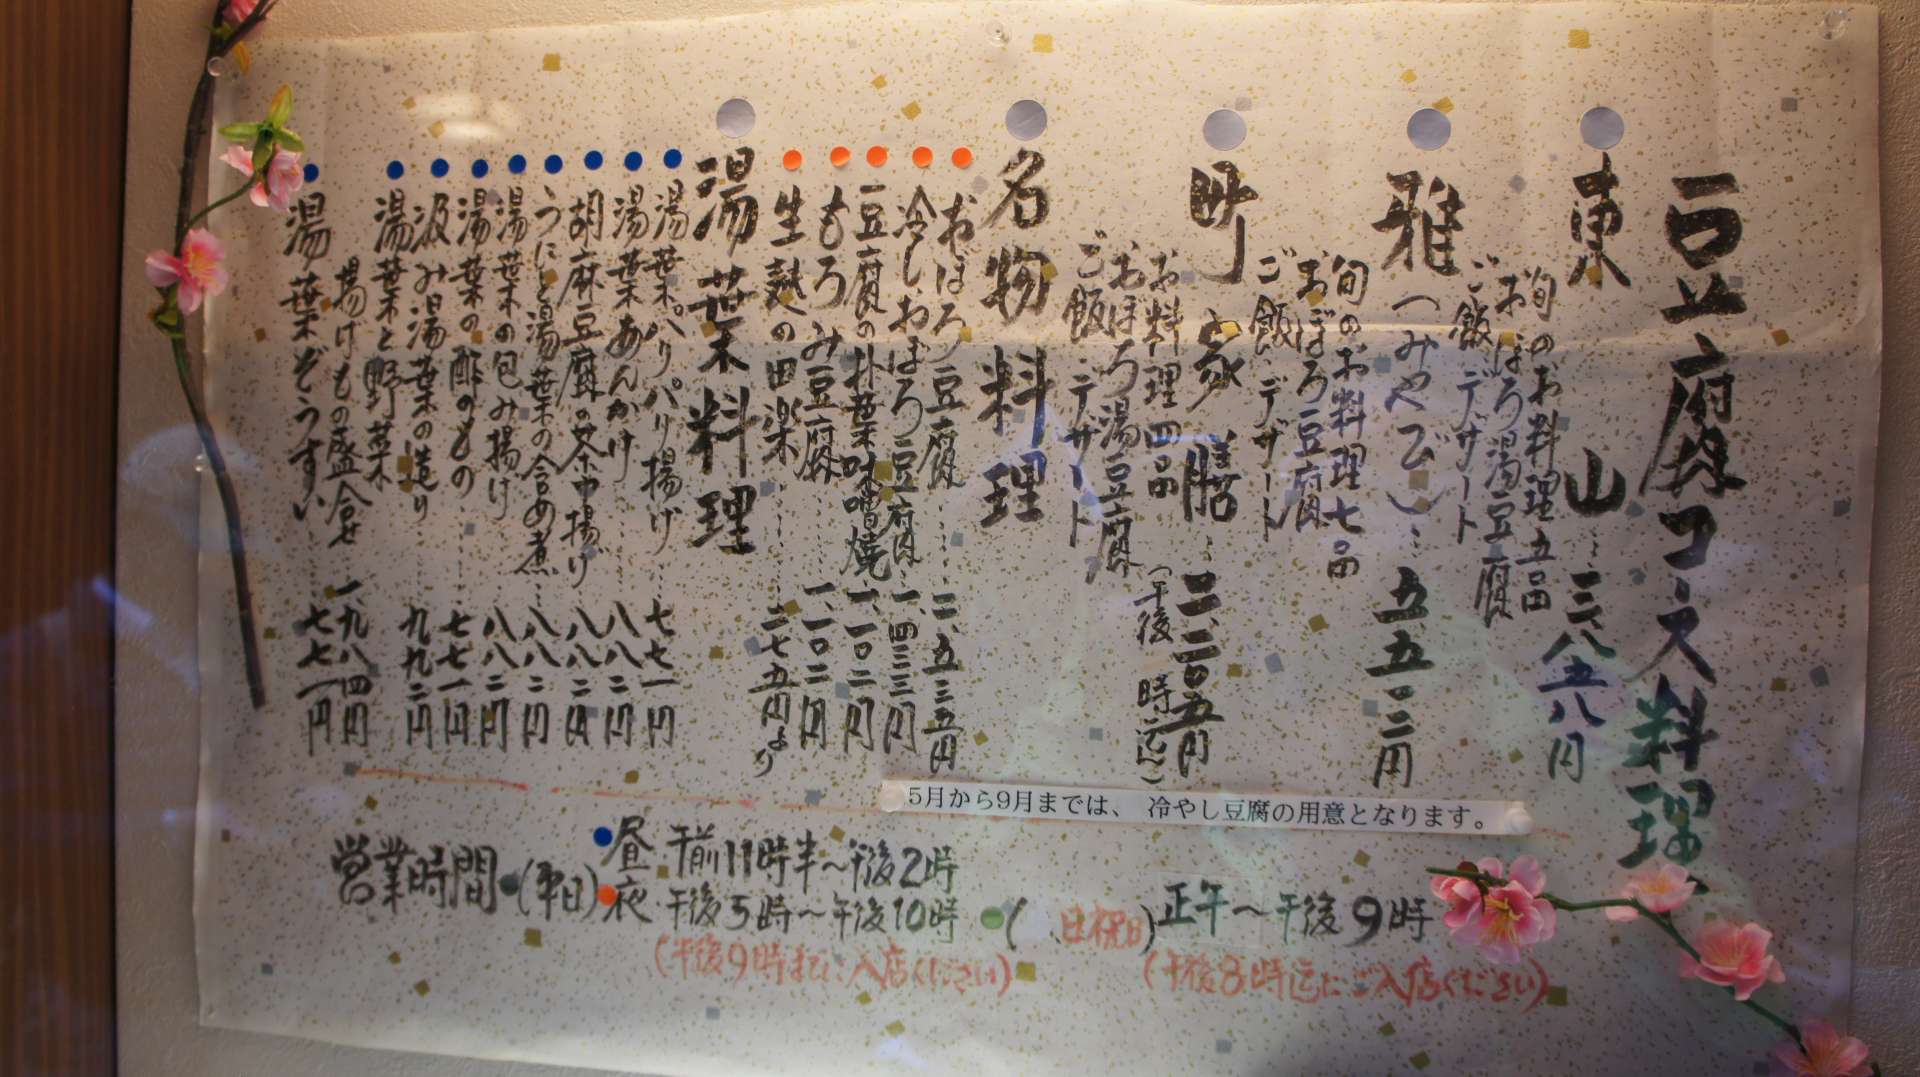 豆腐コース料理
東山…三、八五八円
旬のお料理五品
おぼろ湯豆腐
ご飯・デザート
雅（みやび）…五五〇二円
旬のお料理七品
おぼろ豆腐
ご飯・デザート
町家膳…二、二〇五円
（午後 時迄）
お料理四品
おぼろ湯豆腐
ご飯・デザート
名物料理
おぼろ豆腐……一、五三五円
冷しおぼろ豆腐…一、四三三円
豆腐の朴葉味噌焼 一、一〇二円
もろみ豆腐……一、一〇二円
生麩の田楽……二七五円より
湯葉料理
湯葉パリパリ揚げ…七七一円
湯葉あんかけ……八八二円
胡麻豆腐の茶巾揚げ…八八二円
うにと湯葉の含め煮…八八二円
湯葉の包み揚げ……八八二円
湯葉の酢のもの……七七一円
汲み湯葉の造り……九九二円
湯葉と野菜
揚げもの盛合せ 一九八四円
湯葉ぞうすい……七七一円
5月から9月までは、 冷やし豆腐の用意となります。
営業時間・（平日）
昼 午前11時半〜午後2時
夜 午後5時〜午後10時
（午後9時までに入店ください）
（ 日祝日）正午〜午後9時
（午後8時迄にご入店ください）